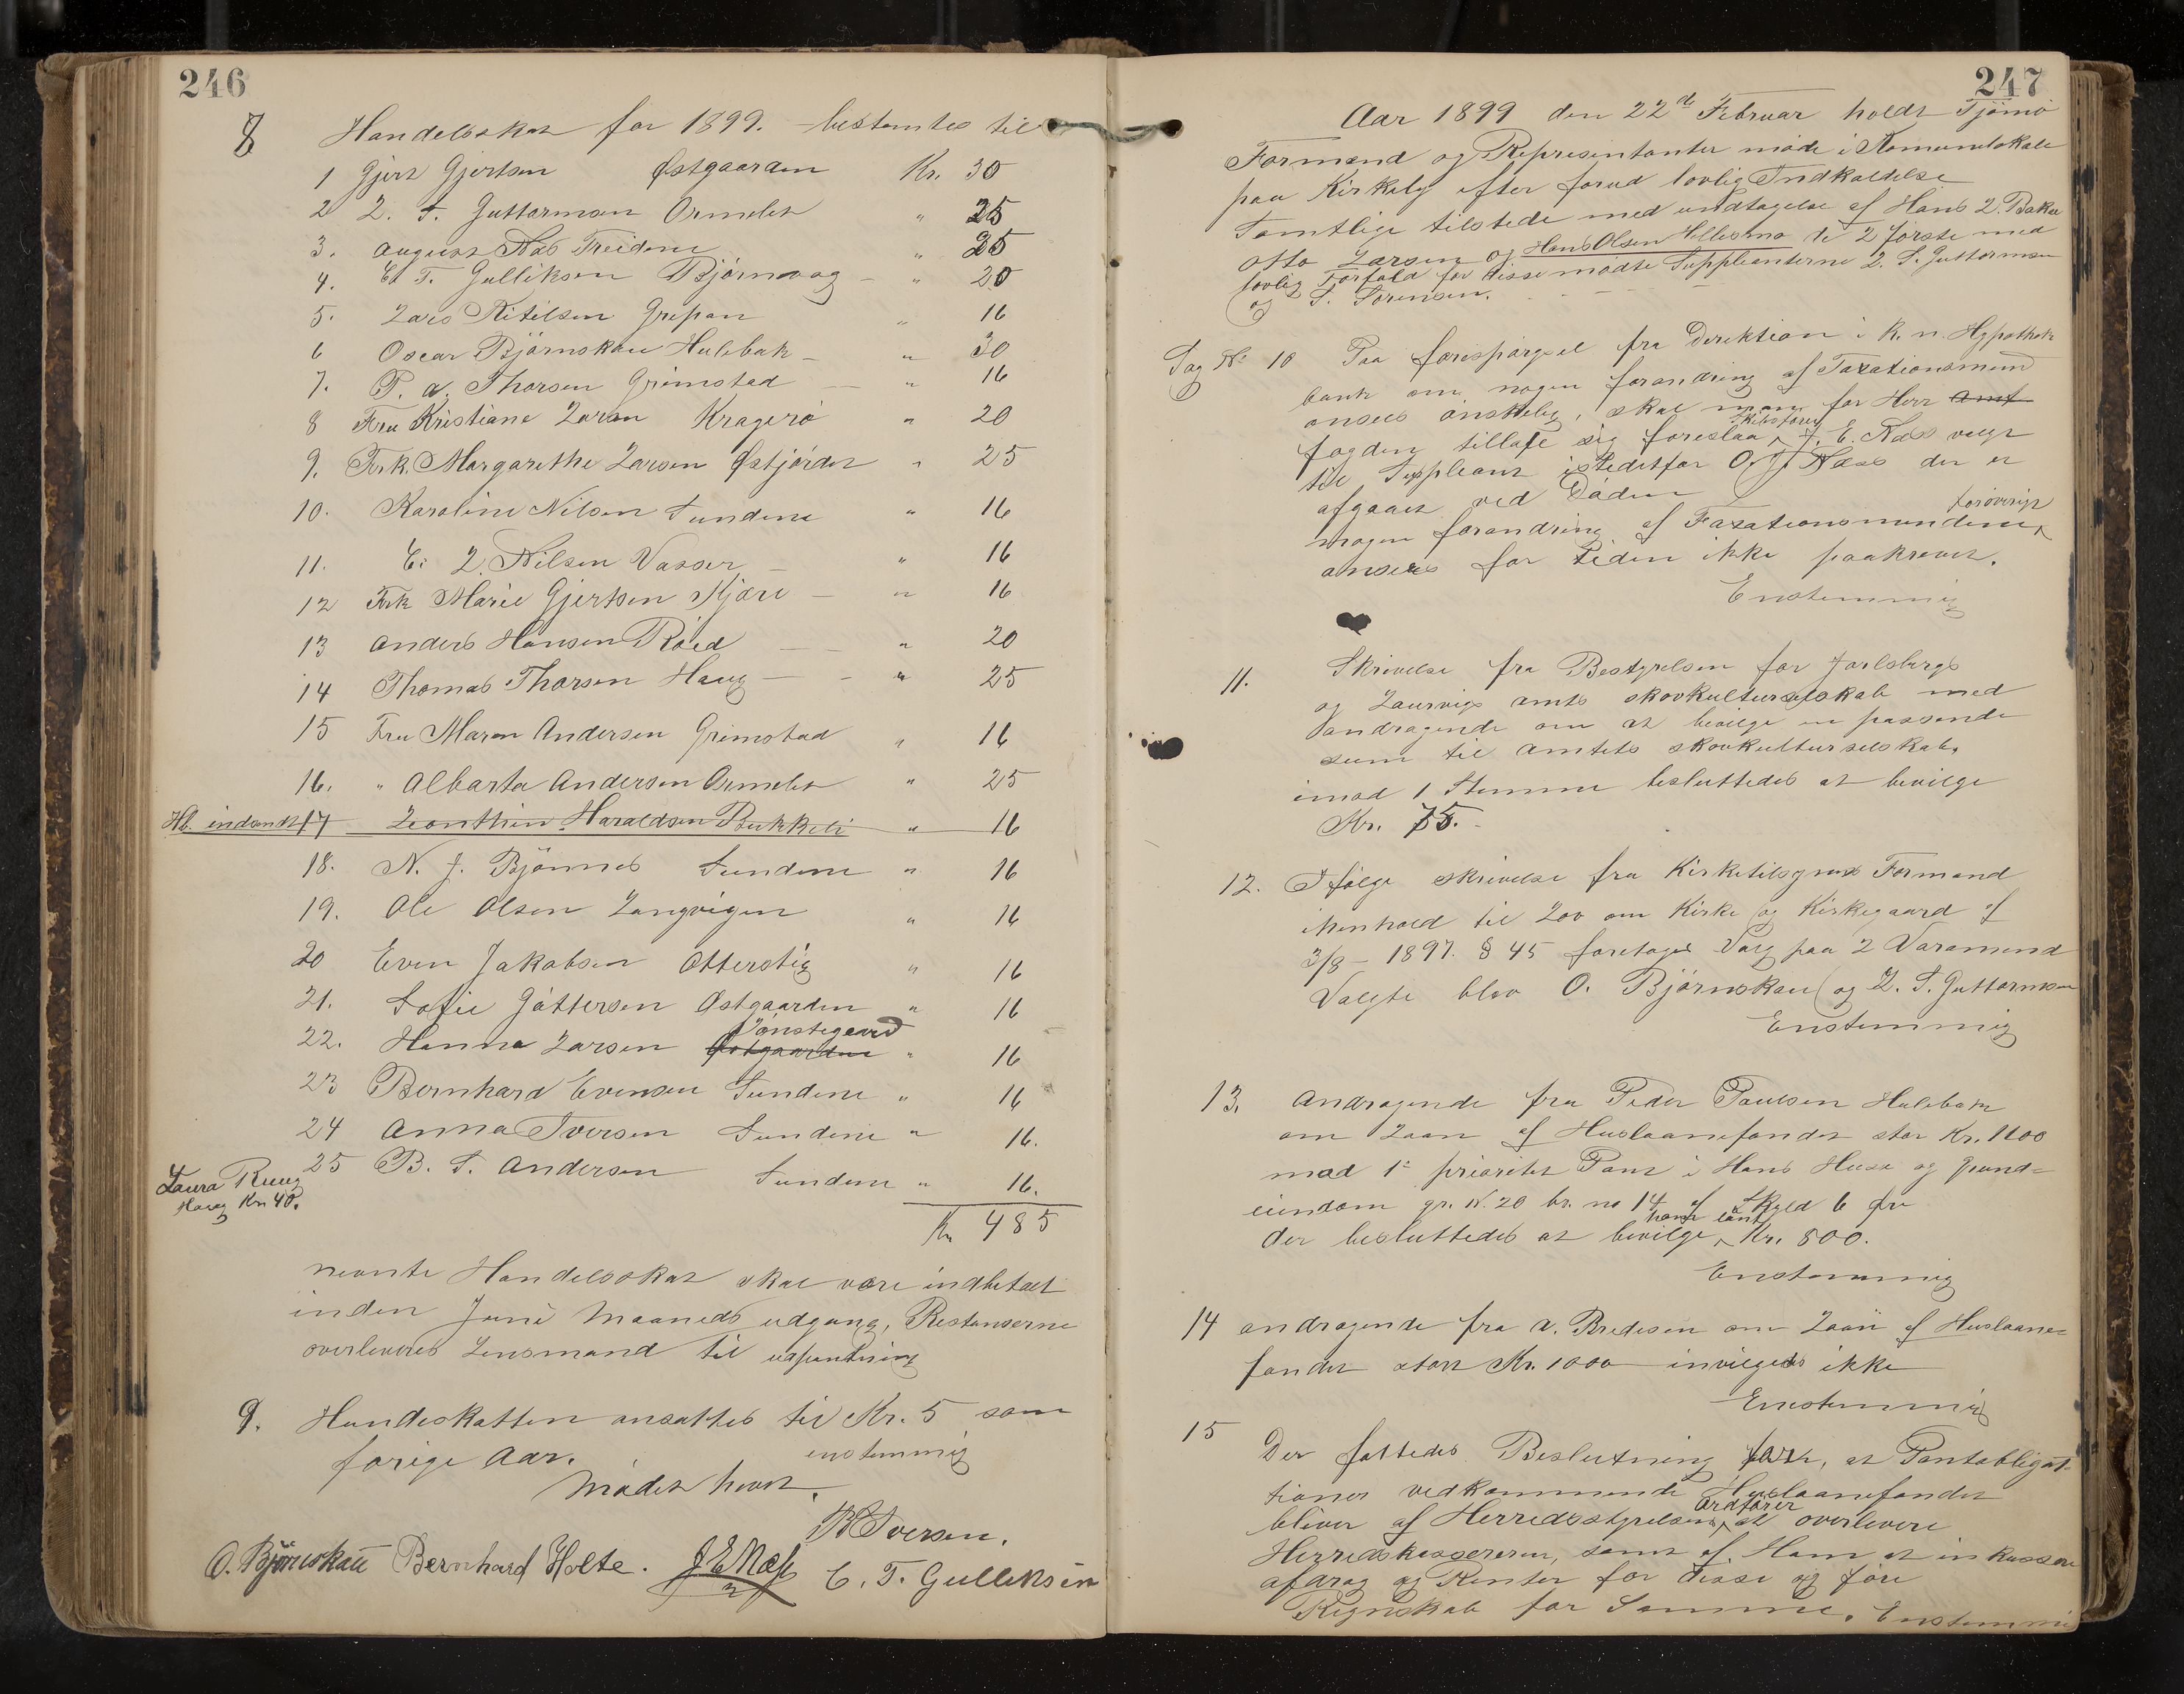 246
8 Handelsskat for 1899. bestemtes til
1 Gjert Gjertsen Østgaarden Kr. 30
2 L. S. Guttormsen Ormelet " 25
3. August Næs Treidene " 25
4. E. T. Gulliksen Bjørnevaag — " 20
5. Lars Ketilsen Grepan " 16
6 Oscar Bjørnskau Hulebak — " 30
7. P. A. Thorsen Grimstad — " 16
8 Fru Kristiane Larsen Kragerø " 20
9. Frk. Margarethe Larsen Østjordet " 25
10. Karoline Nilsen Sundene " 16
11. E. L. Nilsen Vasser — " 16
12 Frk Marie Gjertsen Kjære — " 16
13 Anders Hansen Röed — — " 20
14 Thomas Thorsen Haug — - " 25
15 Fru Maren Andersen Grimstad " 16
16. " Albarta Andersen Ormelet " 25
17 Leonthine Haraldsen Bukkeli " 16
18. N. J. Bjönnes Sundene " 16
19. Ole Olsen Langvigen " 16
20 Even Jakobsen Otterstig " 16
21. Sofie Gåttersen Østgaarden " 16
Jonstegaard
22. Hanna Larsen Østgaarden " 16
23 Bernhard Evensen Sundene " 16
24 Anna Iversen Sundene " 16.
25 B. S. Andersen Sundene " 16.
Laura Ruug
Haug Kr. 40.
Kr 485
nevnte Handelsskat skal være indbetalt
inden Juni Maaneds udgang, Restanserne
overleveres Lensmand til udpantning
9. Hundeskatten ansattes til Kr. 5 som
forige Aar. enstemmig
Mödet hævet.
B Iversen.
O. Bjørnskau Bernhard Holte. J E Næs C. T. Gulliksen
247
Aar 1899 den 22de Februar holdt Tjömö
Formænd og Representanter møde i Komunelokale
paa Kirkeby efter forud lovlig Indkaldelse
Samtlige tilstede med undtagelse af Hans L. Bakke
Otto Larsen og Hans Olsen Hellesmo de 2 förste med
lovlig Forfald for disse mødte Suppleanterne L. S. Guttormsen
og S. Sörensen.
Sag No 10 Paa forespörgsel fra Direktion i K. n. Hypothek
bank om nogen forandring af Taxationsmænd
ansees önskelig, skal man for Herr Amt
Skibsförer
fogden tillade sig foreslaa J. E. Næs valgt
til Suppleant istedetfor O. J. Næss der er
afgaaet ved Döden
forövrigt
nogen forandring af Taxationsmændene
ansees for tiden ikke paakrævet.
Enstemmig
11. Skrivelse fra Bestyrelsen for Jarlsbergs
og Laurvigs amts skovkulturselskab med
andragende om at bevilge en passende
sum til amtets skovkulturselskab,
imod 1 Stemme besluttedes at bevilge
Kr. 75.
12. Ifölge skrivelse fra Kirketilsynets Formand
ihenhold til Lov om Kirke og Kirkegaard af
3/8 - 1897. § 45 foretoges Valg paa 2 Varamænd
Valgte blev O. Björnskau og L. S. Guttormsen
Enstemmig
13. Andragende fra Peder Paulsen Hulebak
om Laan af Huslaanefondet stor Kr. 1100
mod 1ste prioritet Pant i Hans Huse og grund=
eiendom gr. N. 20 br. no 14 af Skyld 6 øre
ham laant
der besluttedes at bevilge Kr. 800.
Enstemmig
14 andragende fra A. Bredesen om Laan af Huslaane=
fondet stort Kr. 1000 invilgedes ikke
Enstemmig
15
Der fattedes Beslutning for, at Pantobliga-
tioner vedkommende Huslaanefondet
Ordförer
bliver af Herredsstyrelsens at overlevere
Herredskassereren, samt af Ham at inkassere
afdrag og Renter for disse og före
Regnskab for Samme. Enstemmig